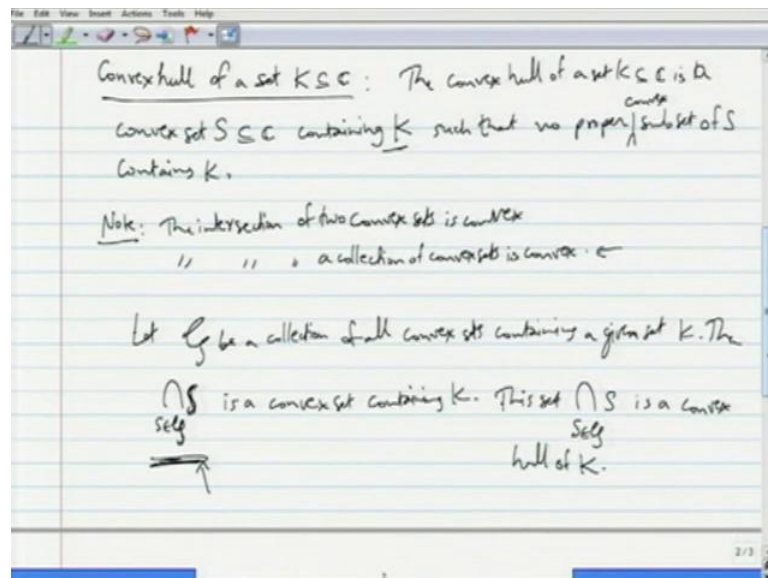 File Edit View Insert Actions Tools Help
Convex hull of a set K ⊆ ℂ : The convex hull of a set K ⊆ ℂ is a
convex
convex set S ⊆ ℂ containing K such that no proper subset of S
contains K.
Note: The intersection of two convex sets is convex
" " " a collection of convex sets is convex. ←
Let 𝒢 be a collection of all convex sets containing a given set K. The
⋂ S is a convex set containing K. This set ⋂ S is a convex
S∈𝒢 S∈𝒢
hull of K.
2/3